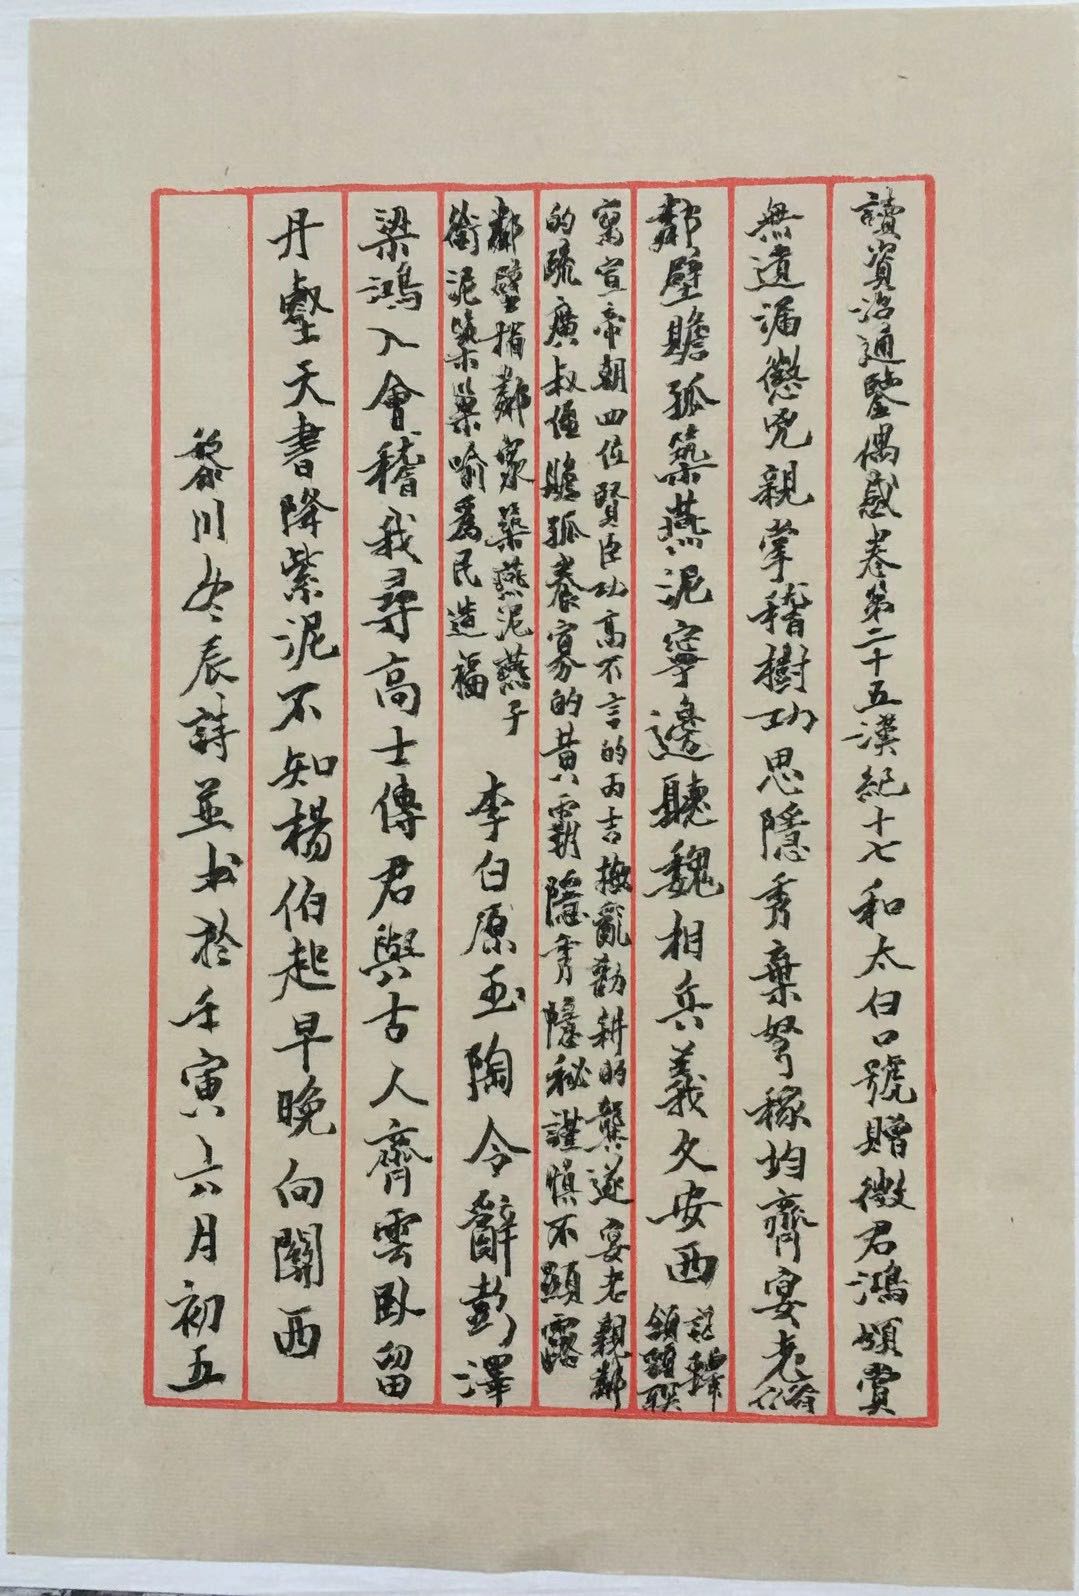 讀資治通鑒偶感卷第二十五漢紀十七和太白口號贈徵君鴻頒賞
無遺漏懲兇親掌稽樹功思隱秀棄弩稼均齊宴老
鄰壁贍孤築燕泥寧邊聽魏相兵義久安西
頷頸聯
寫宣帝朝四位賢臣功高不言的丙吉撥亂勸耕的龔遂宴老親鄰
的疏廣叔侄贍孤養寡的黃霸隱秀隱秘謹慎不顯露
鄰壁指鄰家築燕泥燕子
銜泥築巢喻爲民造福
李白原玉陶令辭彭澤
梁鴻入會稽我尋高士傳君與古人齊雲臥留
丹壑天書降紫泥不知楊伯起早晚向關西
黎川 辰詩並书於壬寅六月初五